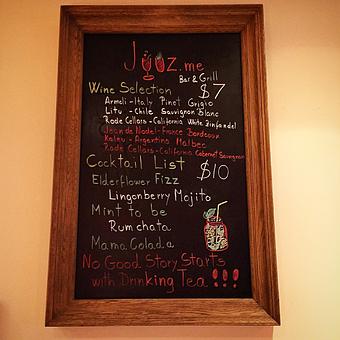 Juuz.me
Bar & Grill
Wine Selection $7
Armeli - Italy Pinot Grigio
Litu - Chile Sauvignon Blanc
Rade Cellars - California White Zinfandel
Jean de Nadel - France Bordeaux
Kaleu - Argentina Malbec
Rade Cellars - California Cabernet Sauvignon
Cocktail List $10
Elderflower Fizz
Lingonberry Mojito
Mint to be
Rumchata
Mama Colada
No Good Story Starts
with Drinking Tea !!!